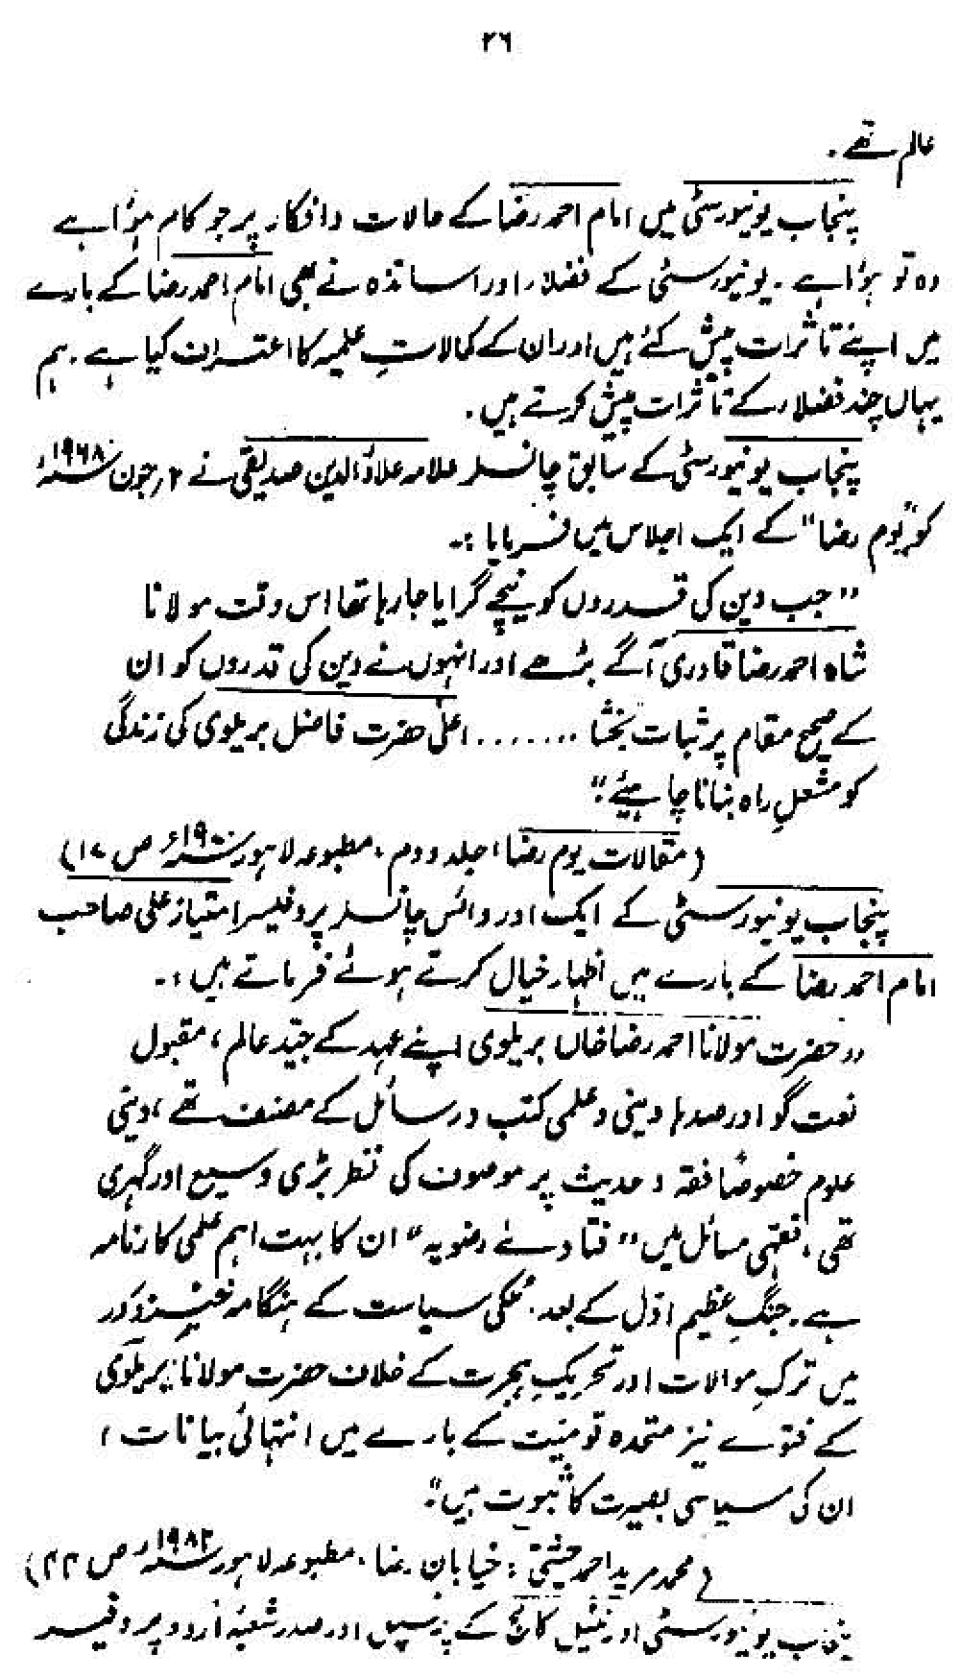 ۲۶
عالم تھے۔
پنجاب یونیورسٹی میں امام احمد رضا کے حالات وافکار پر جو کام ہوا ہے
وہ تو ہوا ہے۔ یونیورسٹی کے فضلاء اور اساتذہ نے بھی امام احمد رضا کے بارے
میں اپنے تاثرات پیش کئے ہیں اور ان کے کمالاتِ علمیہ کا اعتراف کیا ہے۔ ہم
یہاں چند فضلاء کے تاثرات پیش کرتے ہیں۔
پنجاب یونیورسٹی کے سابق چانسلر علامہ علاؤالدین صدیقی نے ۲؍جون ۱۹۶۸ء
کو "یوم رضا" کے ایک اجلاس میں فرمایا :۔
"جب دین کی قدروں کو نیچے گرایا جا رہا تھا اس وقت مولانا
شاہ احمد رضا قادری آگے بڑھے اور انہوں نے دین کی قدروں کو ان
کے صحیح مقام پر ثبات بخشا ....... اعلیٰ حضرت فاضل بریلوی کی زندگی
کو مشعلِ راہ بنانا چاہیئے"
(مقالات یوم رضا، جلد دوم، مطبوعہ لاہور ۱۹۷۰ء ص ۱۷)
پنجاب یونیورسٹی کے ایک اور وائس چانسلر پروفیسر امتیاز علی صاحب
امام احمد رضا کے بارے میں اظہار خیال کرتے ہوئے فرماتے ہیں :۔
"حضرت مولانا احمد رضا خاں بریلوی اپنے عہد کے جیّد عالم، مقبول
نعت گو اور صدہا دینی و علمی کتب و رسائل کے مصنف تھے، دینی
علوم خصوصًا فقہ و حدیث پر موصوف کی نظر بڑی وسیع اور گہری
تھی، فقہی مسائل میں "فتاوے رضویہ" ان کا بہت اہم علمی کارنامہ
ہے۔ جنگِ عظیم اوّل کے بعد، ملکی سیاست کے ہنگامہ خیز دور
میں ترکِ موالات اور تحریکِ ہجرت کے خلاف حضرت مولانا بریلوی
کے فتوے نیز متحدہ قومیّت کے بارے میں انتہائی بیانات،
ان کی سیاسی بصیرت کا ثبوت ہیں"۔
(محمد مرید احمد چشتی : خیابان رضا، مطبوعہ لاہور ۱۹۸۲ء ص ۴۲)
پنجاب یونیورسٹی اورنٹیل کالج کے پرنسپل اور صدر شعبۂ اُردو پروفیسر